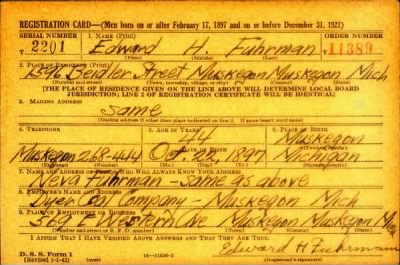 REGISTRATION CARD—(Men born on or after February 17, 1897 and on or before December 31, 1921)
SERIAL NUMBER 1. NAME (Print) ORDER NUMBER
T 2201 Edward H. Fuhrman 11389
(First) (Middle) (Last)
2. PLACE OF RESIDENCE (Print)
1596 Beidler Street Muskegon Muskegon Mich
(Number and street) (Town, township, village, or city) (County) (State)
[THE PLACE OF RESIDENCE GIVEN ON THE LINE ABOVE WILL DETERMINE LOCAL BOARD
JURISDICTION; LINE 2 OF REGISTRATION CERTIFICATE WILL BE IDENTICAL]
3. MAILING ADDRESS
Same
(Mailing address if other than place indicated on line 2. If same insert word same)
4. TELEPHONE 5. AGE IN YEARS 6. PLACE OF BIRTH
44 Muskegon
DATE OF BIRTH
Muskegon 268-444 Oct 1897 Michigan
(Exchange) (Number) (Mo.) (Day) (Yr.) (State or country)
7. NAME AND ADDRESS OF PERSON WHO WILL ALWAYS KNOW YOUR ADDRESS
Neva Fuhrman - same as above
8. EMPLOYER'S NAME AND ADDRESS
Dyer Coal Company - Muskegon Mich
9. PLACE OF EMPLOYMENT OR BUSINESS
Western Ave Muskegon Muskegon Mich
(Number and street or R. F. D. number) (Town) (County) (State)
I AFFIRM THAT I HAVE VERIFIED ABOVE ANSWERS AND THAT THEY ARE TRUE.
D. S. S. Form 1
(Revised 1-1-42) (over) Edward H Fuhrman